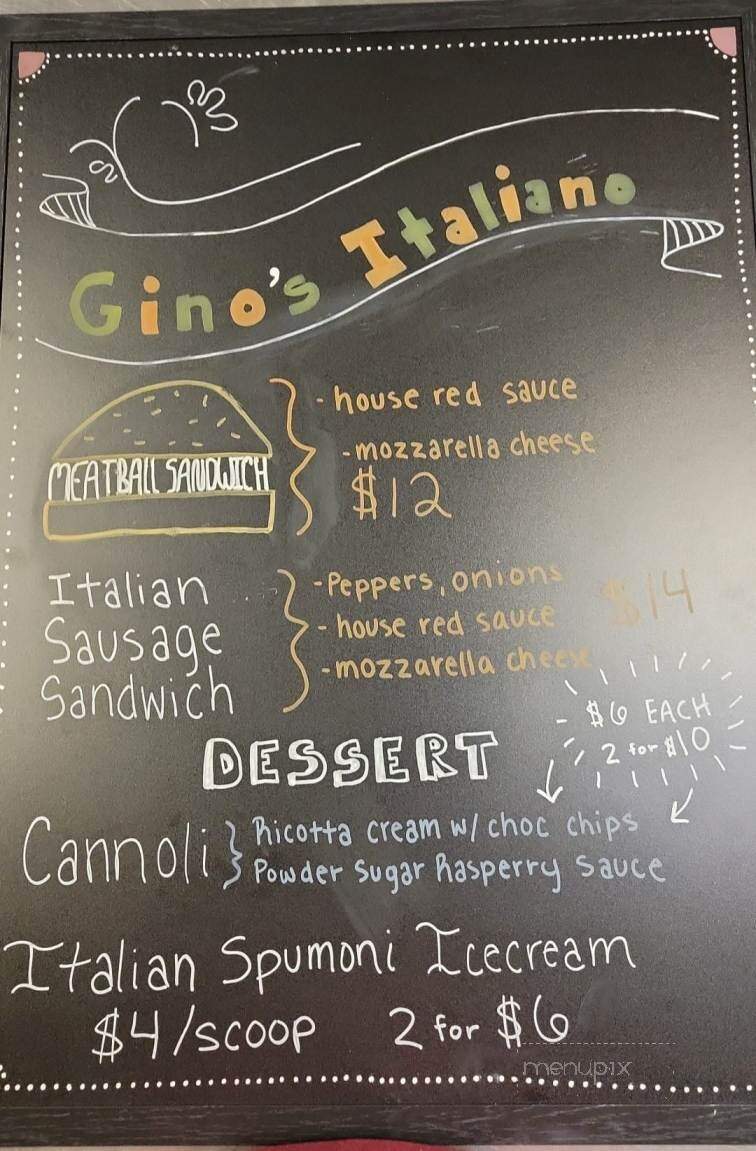 Gino's Italiano
MEATBALL SANDWICH
- house red sauce
- mozzarella cheese
$12
Italian
Sausage
Sandwich
- Peppers, onions
- house red sauce
- mozzarella cheese
$14
DESSERT
- $6 EACH
2 for $10
Cannoli
Ricotta cream w/ choc chips
Powder Sugar Rasperry Sauce
Italian Spumoni Icecream
$4/scoop 2 for $6
menupix